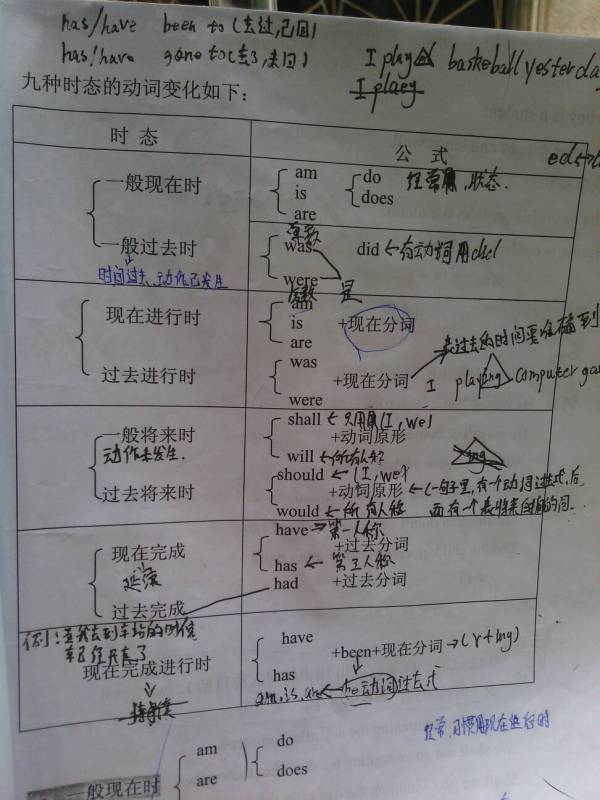 has/have been to (去过,已回)
has/have gone to(去了,未回)
I play basketball yesterday
I plaey
九种时态的动词变化如下：
时 态
公 式
am
一般现在时
is
are
do
does
经常 ,状态.
单数
一般过去时
was
were
did ←有动词用did
时间过去、动作已发生
复数 是
现在进行时
am
is +现在分词
are
表过去的时间要准确到
过去进行时
was
+现在分词
were
I playing Computer
一般将来时
动作未发生.
shall ← 只用 (I, we)
+动词原形
will ← 所有人称
ing
过去将来时
should ← (I, we)
+动词原形 ← (一句子里,有一个动词过去式,后
would ← 所有人称 面有一个表将来 的词.
现在完成
延续
have → 第一人称
+过去分词
has ← 第三人称
过去完成
had +过去分词
例：当我去到车站的时候
车已经开走了
现在完成进行时
have
+been+现在分词 →(v+ing)
has
am.is.are ← be动词过去式
经常,习惯用现在进行时
一般现在时
am
are
do
does